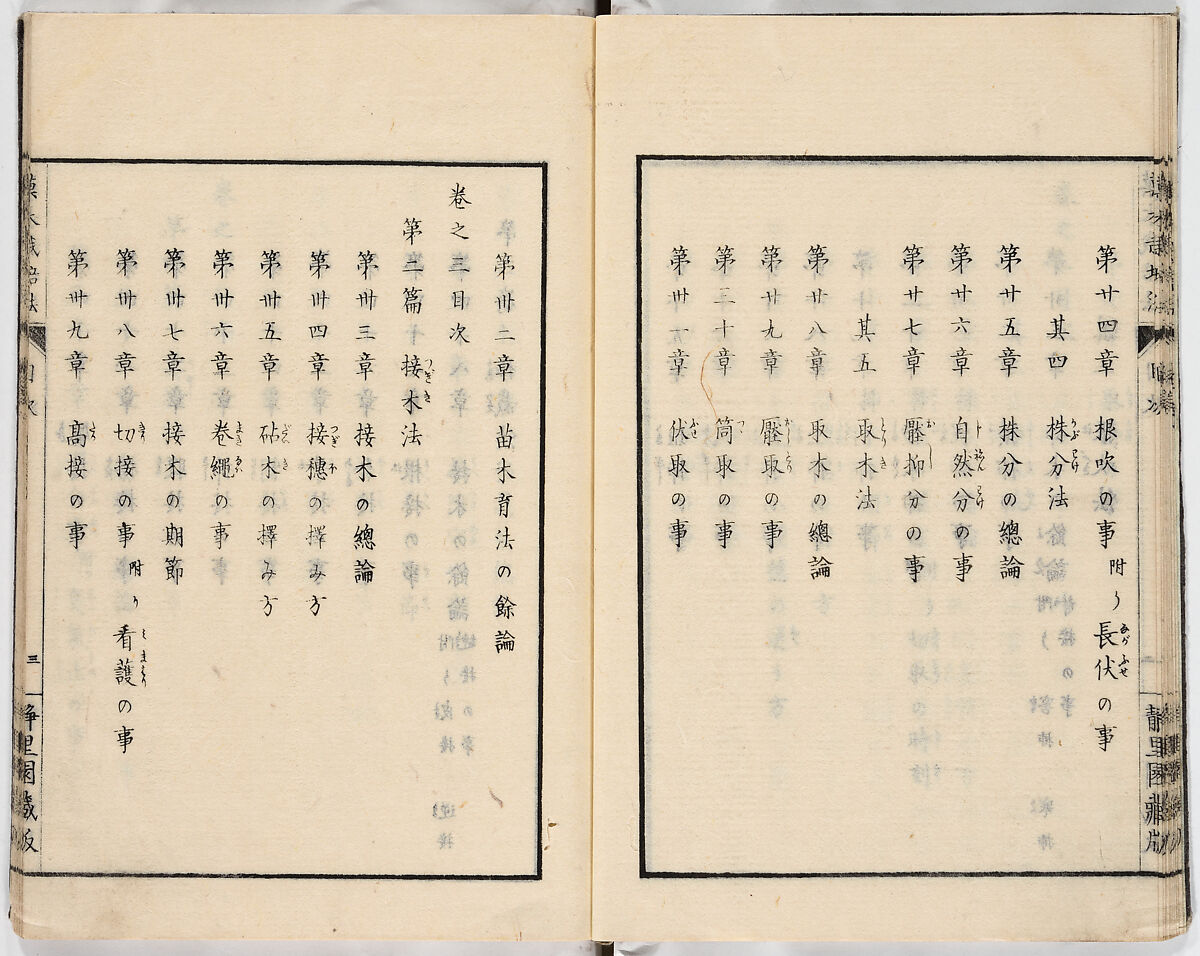 第廿四章 根吹の事 附り長伏の事
第廿其四 株分法
第廿五章 株分の總論
第廿六章 自然分の事
第廿七章 壓抑分の事
第廿其五 取木法
第廿八章 取木の總論
第廿九章 壓取の事
第三十章 筒取の事
第卅一章 伏取の事
目次
靜里園藏版
第卅二章 苗木育法の餘論
卷之三目次
第三篇 接木法
第卅三章 接木の總論
第卅四章 接穗の擇み方
第卅五章 砧木の擇み方
第卅六章 卷繩の事
第卅七章 接木の期節
第卅八章 切接の事 附り看護の事
第卅九章 高接の事
目次
三
靜里園藏版